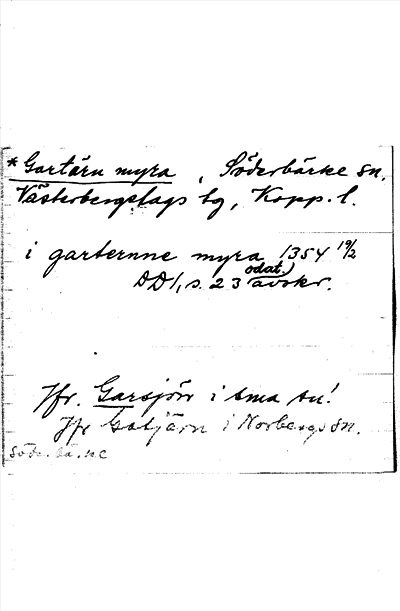 *Gartärn myra, Söderbärke sn,
Västerbergslags tg, Kopp. l.
i garternne myra 1354 19/2
DD 1, s. 23 odat.) avskr.
Jfr. Garsjön i sma sn!
Jfr Gatjärn i Norbergs sn.